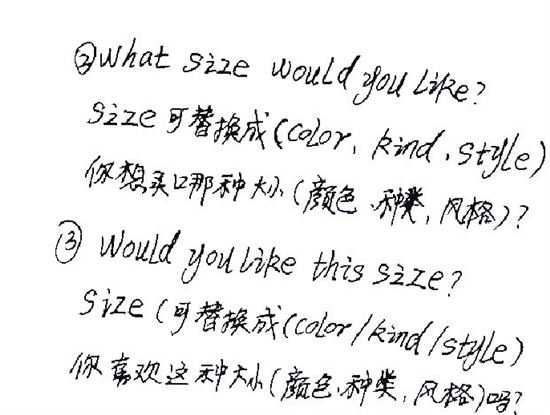 ②What size would you like?
size可替换成(color, kind, style)
你想买哪种大小(颜色、种类,风格)?
③ Would you like this size?
Size (可替换成(color/kind/style)
你喜欢这种大小(颜色、种类,风格)吗?